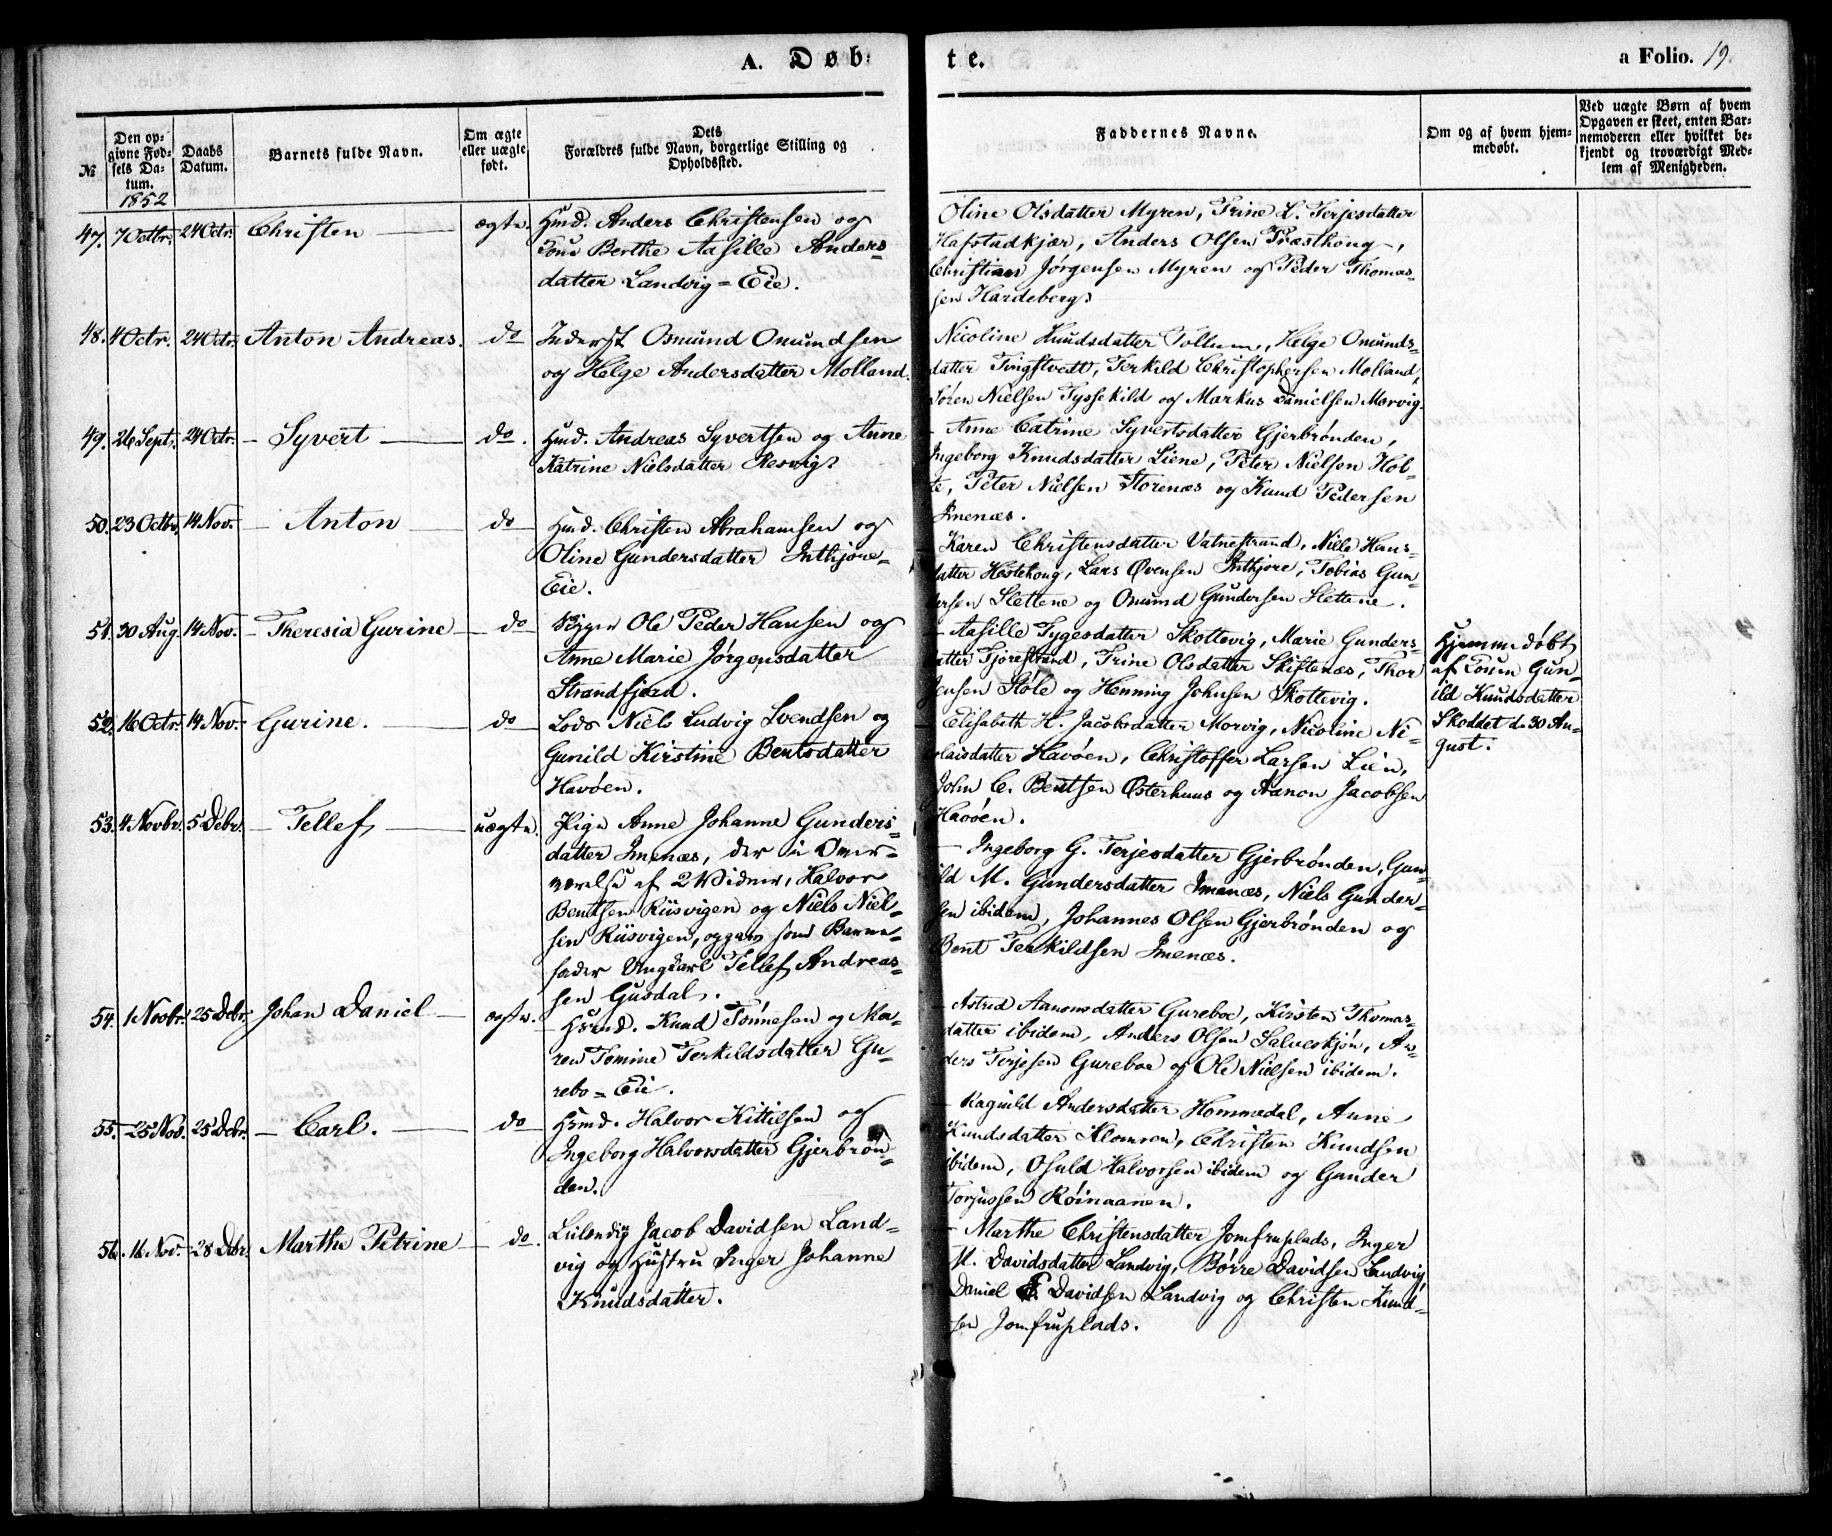 A. Døb-
te.
a Folio. 19.
№
Den op-
givne Fød-
sels Da-
tum.
1852
Daabs
Datum.
Barnets fulde Navn.
Om ægte
eller uægte
født.
Dets
Forældres fulde Navn, borgerlige Stilling og
Opholdssted.
Faddernes Navne.
Om og af hvem hjem-
medøbt.
Ved uægte Børn af hvem
Opgaven er skeet, enten Bar-
nemoderen eller hvilket be-
kjendt og troværdigt Med-
lem af Menigheden.
47. 7 Octbr. 24 Octr. Christen ægte.
Hmd. Anders Christensen og
Kone Berthe Aasille Anders-
datter Landvig-Eie.
Oline Olsdatter Myren, Trine L. Terjesdatter
Hafstadkjær, Anders Olsen Præsthoug,
Christian Jørgensen Myren og Peder Thomas-
sen Hardeberg.
48. 4 Octr. 24 Octr. Anton Andreas. do
Inderst Osmund Omundsen
og Helge Andersdatter Molland.
Nicoline Knudsdatter Tollum, Helge Omunds-
datter Tingstvedt, Terkild Christophersen Molland,
Søren Nielsen Tyssekild og Markus Danielsen Morvig.
49. 26 Sept. 24 Octr. Syvert do.
Hmd. Andreas Syvertsen og Anne
Katrine Nielsdatter Resvig.
Anne Catrine Syvertsdatter Gjerbrønden,
Ingeborg Knudsdatter Liene, Peter Nielsen Hol-
te, Peter Nielsen Storenæs og Knud Pedersen
Imenæs.
50. 23 Octbr. 14 Nov. Anton do
Hmd. Christen Abrahamsen og
Oline Gundersdatter Inthjore-
Eie.
Karen Christensdatter Vatnestrand, Nille Hans-
datter Hestehoug, Lars Øvensen Inthjore, Tobias Gun-
dersen Slettene og Omund Gundersen Slettene.
51. 30 Aug. 14 Nov. Theresia Gurine do
Bygger Ole Peder Hansen og
Anne Marie Jørgensdatter
Strandfjord.
Aasille Tygesdatter Skottevig, Marie Gunders-
datter Fjorestrand, Trine Olsdatter Skiftenæs, Thor
Jensen Støle og Henning Johnsen Skottevig.
Hjemmedøbt
af Konen Gun-
ild Knudsdatter
Skoddet d. 30 Au-
gust.
52. 16 Octr. 14 Nov. Gurine. do
Lods Niels Ludvig Svendsen og
Gunild Kirstine Bentsdatter
Havøen.
Elisabeth H. Jacobsdatter Morvig, Nicoline Ni-
colaisdatter Havøen, Christoffer Larsen Lien,
John C. Bentsen Østerhuus og Aanon Jacobsen
Havøen.
53. 4 Novbr. 5 Debr. Tellef uægte.
Pige Anne Johanne Gunders-
datter Imenæs, der i Over-
værelse af 2 Vidner, Halvor
Bentsen Riisvigen og Niels Niel-
sen Riisvigen, opgav som Barne-
fader Ungkarl Tellef Andreas-
sen Gusdal.
Ingeborg G. Terjesdatter Gjerbrønden, Gun-
ild M. Gundersdatter Imenæs, Niels Gunder-
sen ibidem, Johannes Olsen Gjerbrønden og
Bent Terkildsen Imenæs.
54. 1 Novbr. 25 Debr. Johan Daniel ægte.
Hsmd. Knud Tønnesen og Ma-
ren Tomine Terkildsdatter Gu-
rebo-Eie.
Astrid Aanonsdatter Gureboe, Kirsten Thomas-
datter ibidem, Anders Olsen Salveskjøn, An-
ders Terjesen Gureboe og Ole Nielsen ibidem.
55. 25 Nov. 25 Debr. Carl. do
Hsmd. Halvor Kittilsen og
Ingeborg Halvorsdatter Gjerbrøn-
den.
Ragnild Andersdatter Hommedal, Anne
Knudsdatter Klomren, Christen Knudsen
ibidem, Osuld Halvorsen ibidem og Gunder
Torjussen Roinaanen.
56. 16 Nov. 28 Debr. Marthe Petrine do.
Leilændig Jacob Davidsen Land-
vig og Hustru Inger Johanne
Knudsdatter.
Marthe Christensdatter Jomfruplads, Inger
M. Davidsdatter Landvig, Børre Davidsen Landvig,
Daniel Davidsen Landvig og Christen Knud-
sen Jomfruplads.